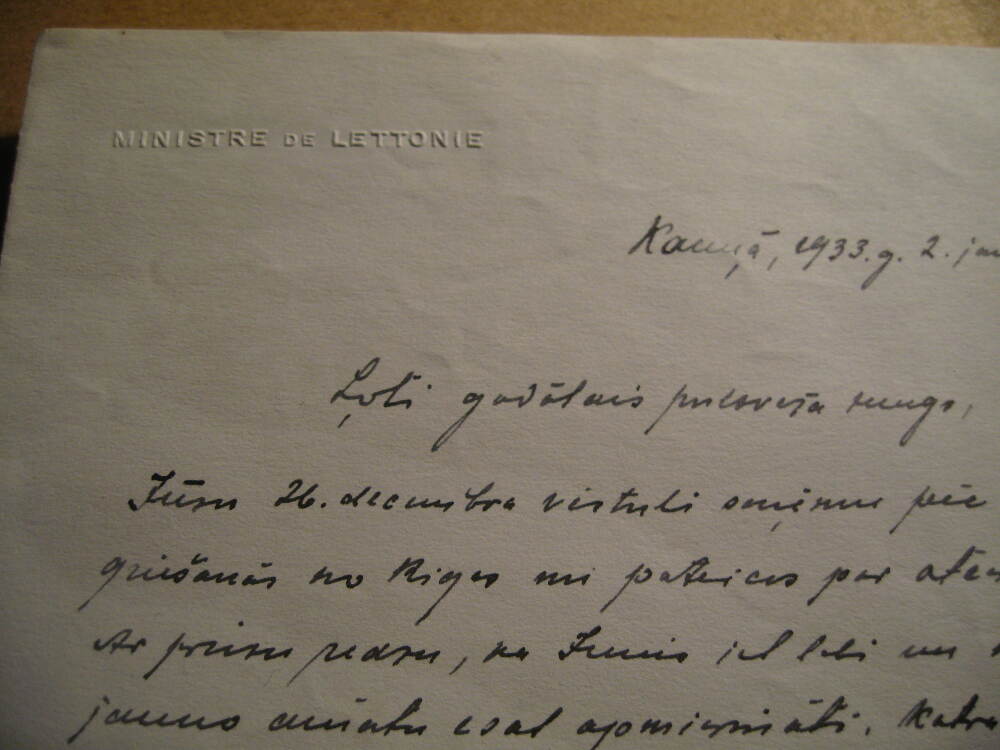 MINISTRE DE LETTONIE
Kauņā, 1933.g. 2. jan
Ļoti godātais pulkveža kungs,
Jūsu 26. decembra vēstuli saņēmu pēc
griešanās no Rīgas un pateicos par
Ar prieku redzu, ka Jums iet labi un
jauno amatu esat apmierināti. Katra